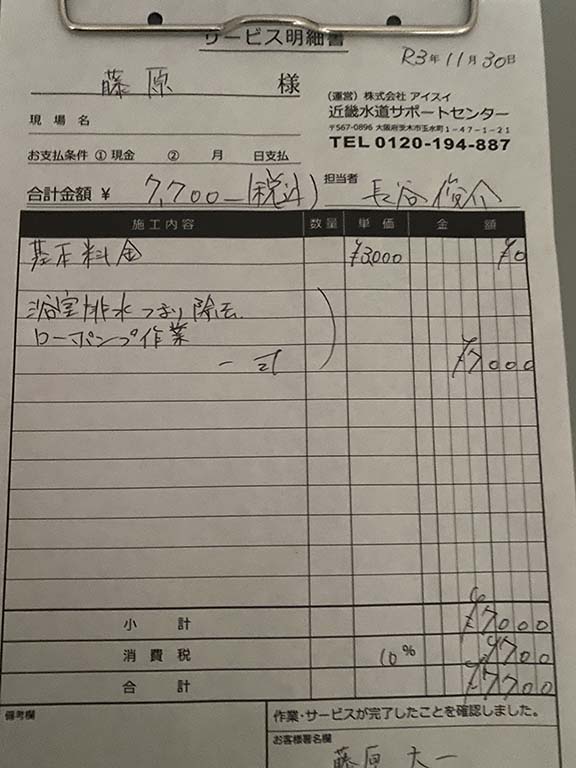 サービス明細書
R3年11月30日
藤原 様
(運営) 株式会社 アイスイ
近畿水道サポートセンター
〒567-0896 大阪府茨木市玉水町1-47-1-21
TEL 0120-194-887
現場名
お支払条件 ① 現金 ② 月 日支払
合計金額 ¥ 7,700-(税込)
担当者 長谷 俊介
施工内容 数量 単価 金額
基本料金 ¥3000 ¥0
浴室排水つまり除去
ローポンプ作業
一式 ¥7000
小計 ¥7000
消費税 10% ¥700
合計 ¥7700
備考欄
作業・サービスが完了したことを確認しました。
お客様署名欄
藤原 大一